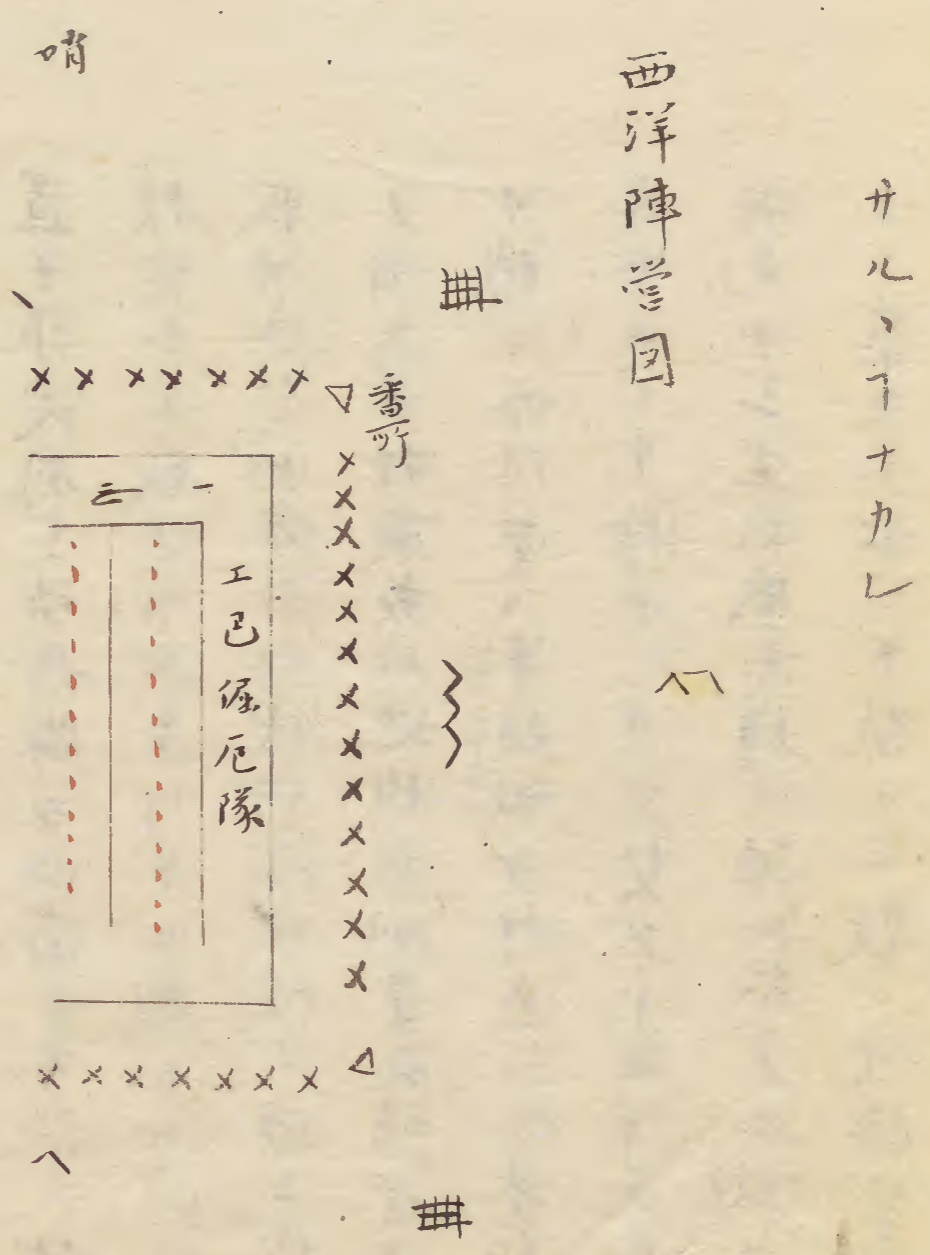 サルヽヿナカレ
西洋陣営図
番所
工已倔厄隊
一
三
哨